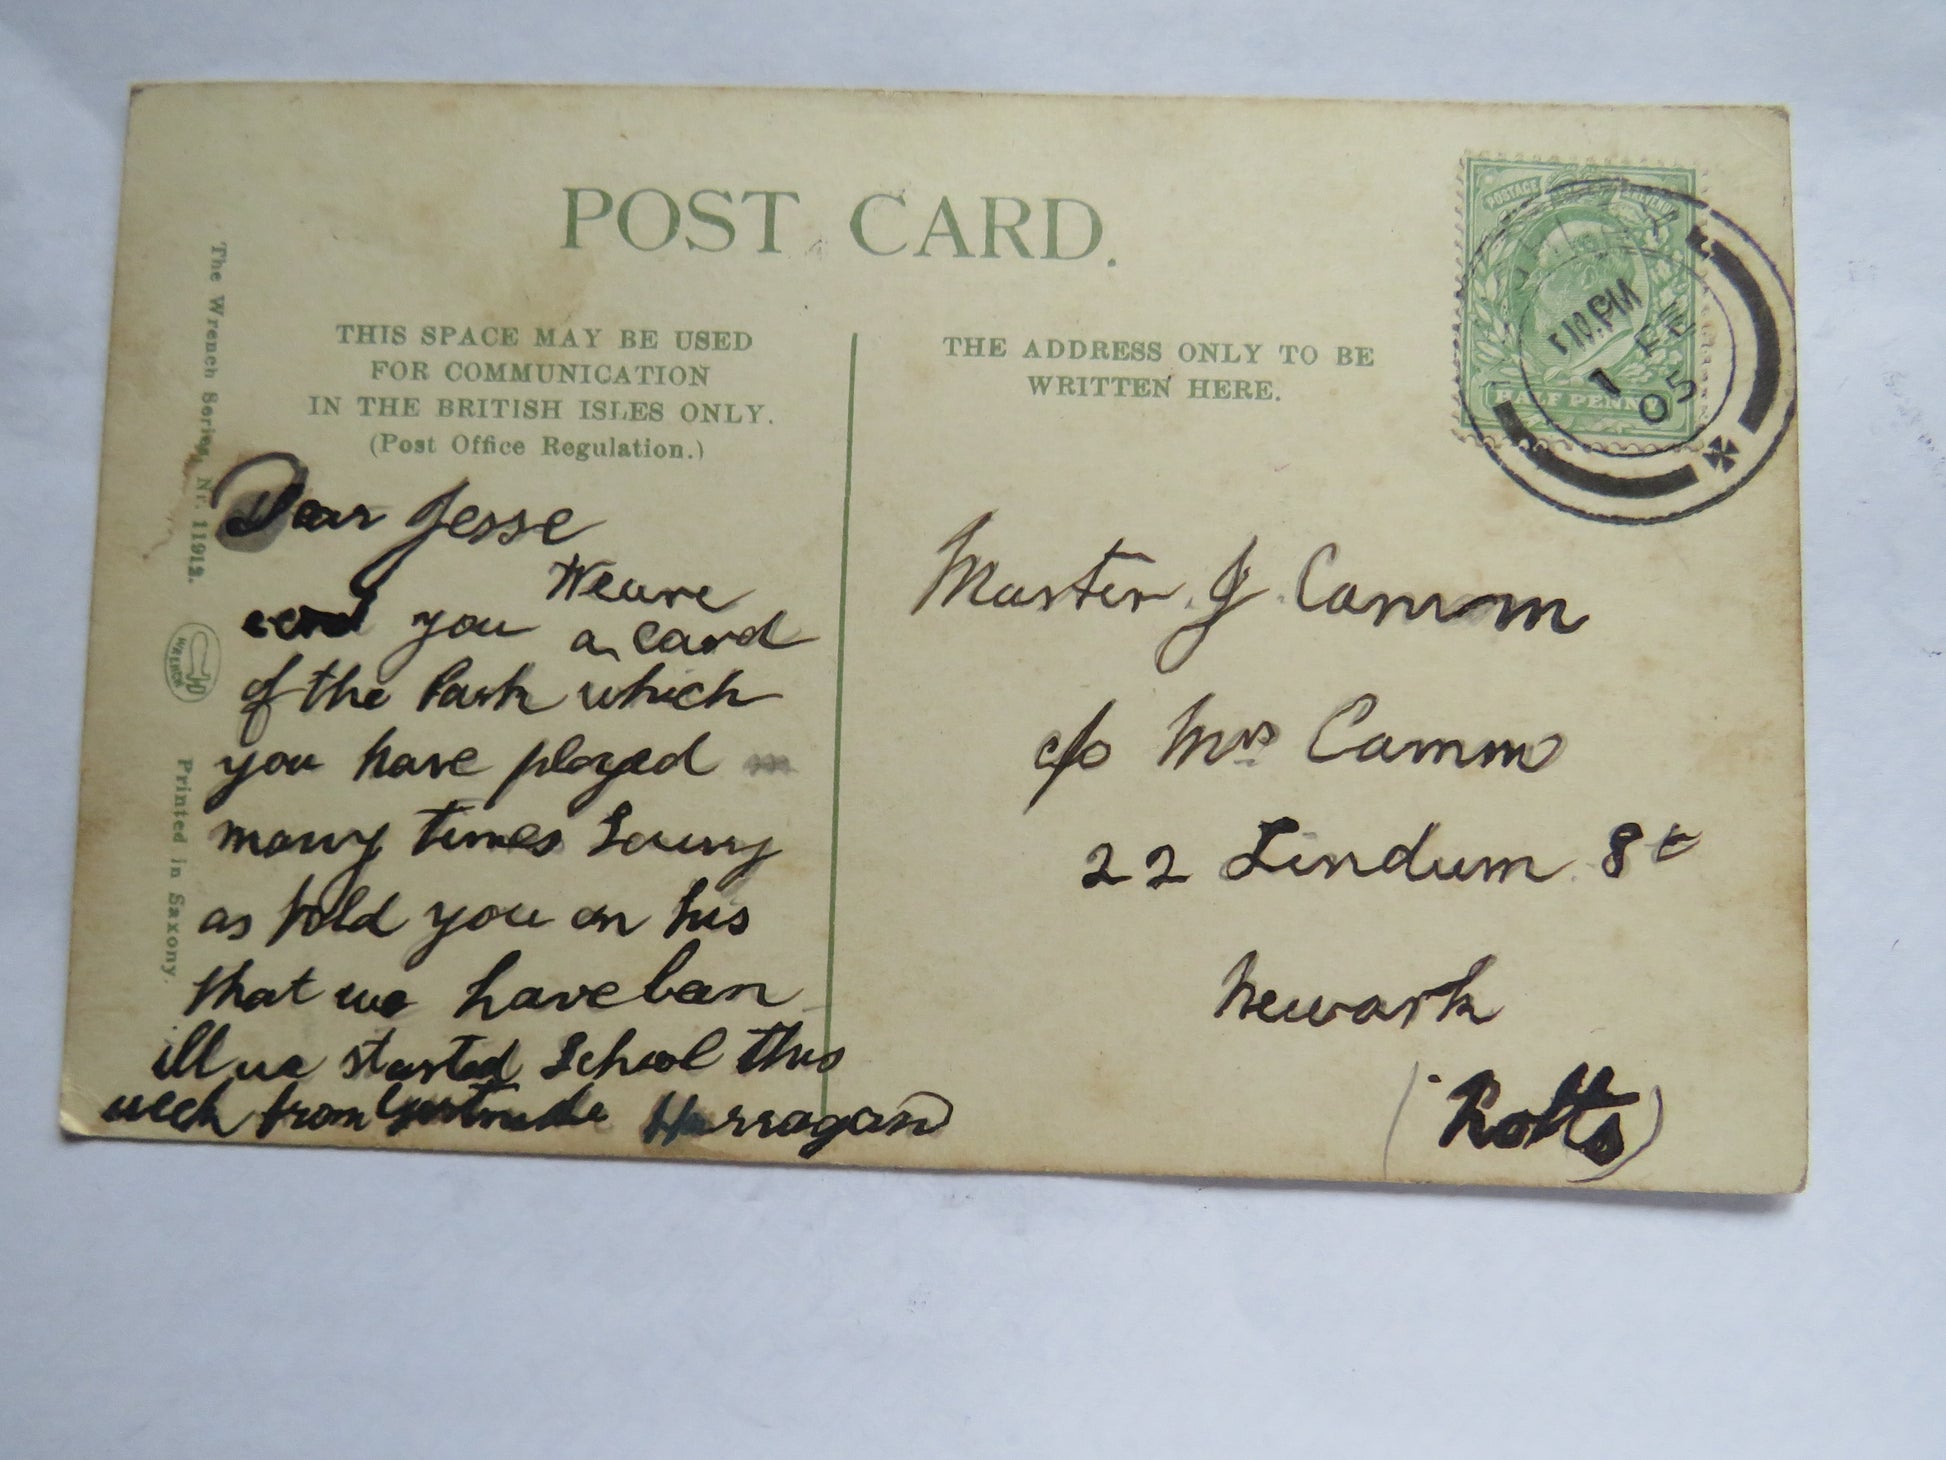 POST CARD.
THIS SPACE MAY BE USED
FOR COMMUNICATION
IN THE BRITISH ISLES ONLY.
(Post Office Regulation.)
THE ADDRESS ONLY TO BE
WRITTEN HERE.
The Wrench Series, Nr. 11912.
WRENCH
Printed in Saxony.
POSTAGE
HALF PENNY
PM
1 FE
05
Dear Jesse
We are
send you a card
of the Park which
you have played
many times
as told you on his
that we have ben
ill we started School this
week from Gertrude Harragan
Master J Camm
c/o Mrs Camm
22 Lindum St
Newark
(Notts)